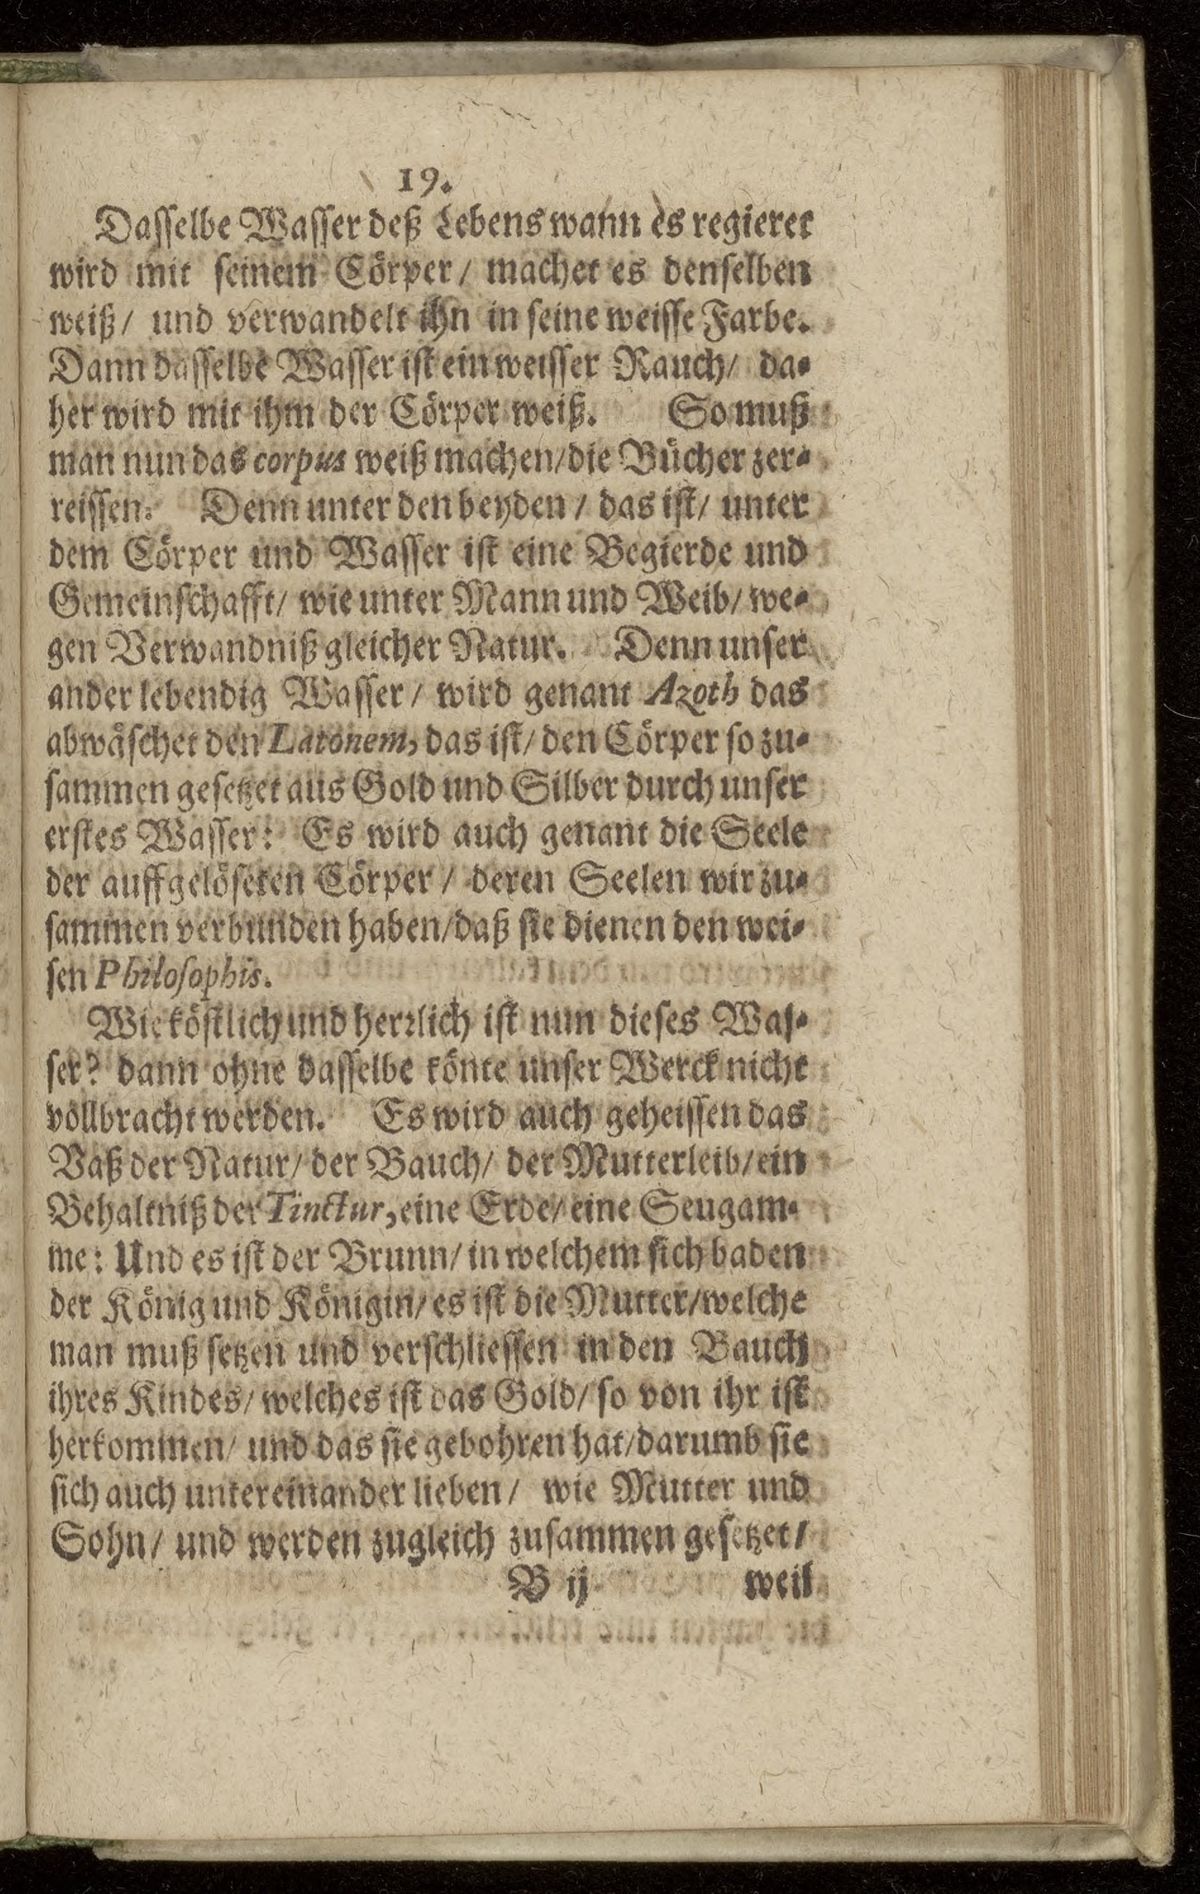 19.
Dasselbe Wasser deß Lebens wann es regieret
wird mit seinem Cörper/ machet es denselben
weiß/ und verwandelt ihn in seine weisse Farbe.
Dann dasselbe Wasser ist ein weisser Rauch/ da-
her wird mit ihm der Cörper weiß. So muß
man nun das corpus weiß machen/die Bücher zer-
reissen. Denn unter den beyden/ das ist/ unter
dem Cörper und Wasser ist eine Begierde und
Gemeinschafft/ wie unter Mann und Weib/ we-
gen Verwandniß gleicher Natur. Denn unser
ander lebendig Wasser/ wird genant Azoth das
abwäschet den Latonem, das ist/ den Cörper so zu-
sammen gesetzet aus Gold und Silber durch unser
erstes Wasser: Es wird auch genant die Seele
der auffgelöseten Cörper/ deren Seelen wir zu-
sammen verbunden haben/daß sie dienen den wei-
sen Philosophis.
Wie köstlich und herrlich ist nun dieses Was-
ser? dann ohne dasselbe könte unser Werck nicht
vollbracht werden. Es wird auch geheissen das
Vaß der Natur/ der Bauch/ der Mutterleib/ein
Behaltniß der Tinctur, eine Erde/ eine Seugam-
me: Und es ist der Brunn/ in welchem sich baden
der König und Königin/ es ist die Mutter/welche
man muß setzen und verschliessen in den Bauch
ihres Kindes/ welches ist das Gold/ so von ihr ist
herkommen/ und das sie gebohren hat/darumb sie
sich auch untereinander lieben/ wie Mutter und
Sohn/ und werden zugleich zusammen gesetzet/
B ij weil